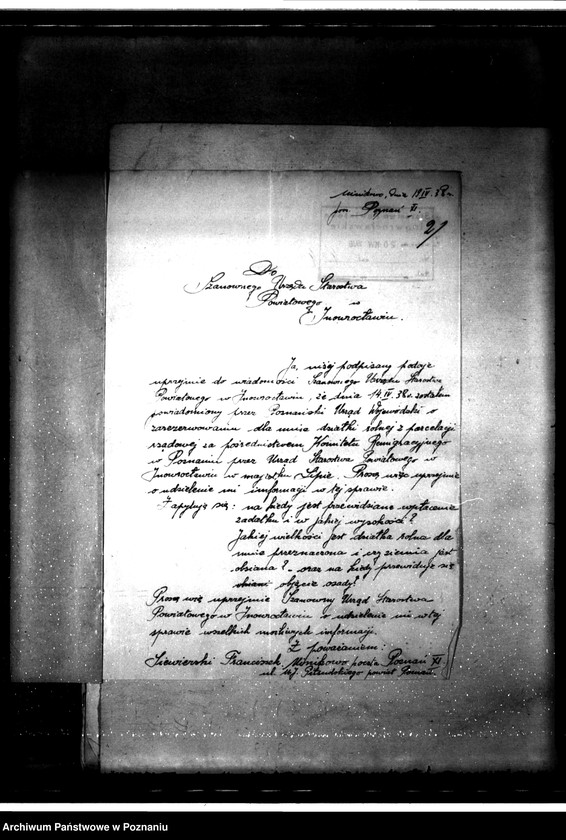 Minikowo, dnia 19 IV. 38 r.
pow. Poznań XI
21
Do
Szanownego Urzędu Starostwa
Powiatowego w
Inowrocławiu.
Ja, niżej podpisany podaje
uprzejmie do wiadomości Szanownego Urzędu Starostwa
Powiatowego w Inowrocławiu, że dnia 14. IV. 38 r. zostałem
powiadomiony przez Poznański Urząd Wojewódski o
zarezerwowaniu dla mnie działki rolnej z parcelacji
rządowej za pośrednictwem Komitetu Remigracyjnego
w Poznaniu przez Urząd Starostwa Powiatowego w
Inowrocławiu w majątku Lipie. Proszę więc uprzejmie
o udzielenie mi informacji w tej sprawie.
Zapytuję się: na kiedy jest przewidziane wpłacenie
zadatku i w jakiej wysokości?
Jakiej wielkości jest działka rolna dla
mnie przeznaczona i czy ziemia jest
obsiana? - oraz na kiedy przewiduje się
objęcie osady?
Proszę więc uprzejmie Szanowny Urząd Starostwa
Powiatowego w Inowrocławiu o udzielenie mi w tej
sprawie wszelkich możliwych informacji.
Z poważaniem:
Siewierski Franciszek Minikowo poczta Poznań XI
ul. powiat Poznań.
Archiwum Państwowe w Poznaniu